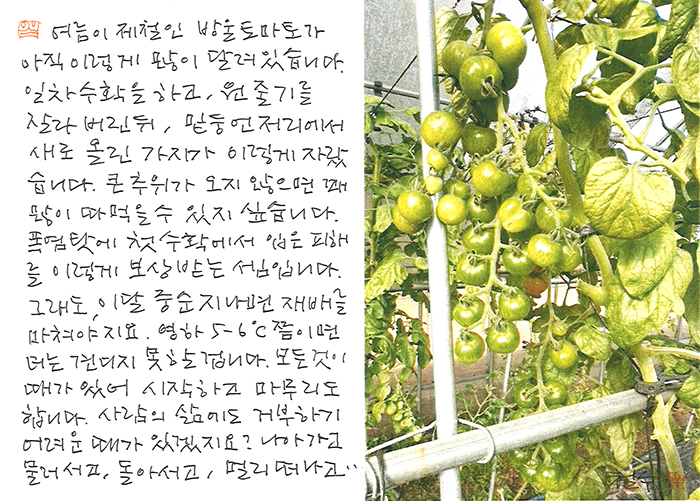 여름이 제철인 방울토마토가
아직 이렇게 많이 달려 있습니다.
일차 수확을 하고, 원줄기를
잘라 버린 뒤, 밑둥 언저리에서
새로 올린 가지가 이렇게 자랐
습니다. 큰 추위가 오지 않으면 꽤
많이 따 먹을 수 있지 싶습니다.
폭염 탓에 첫 수확에서 입은 피해
를 이렇게 보상받는 셈입니다.
그래도, 이달 중순 지나면 재배를
마쳐야지요. 영하 5-6℃쯤이면
더는 견디지 못할 겁니다. 모든 것이
때가 있어 시작하고 마무리도
합니다. 사람의 삶에도 거부하기
어려운 때가 있겠지요? 나아가고
물러서고, 돌아서고, 멀리 떠나고…